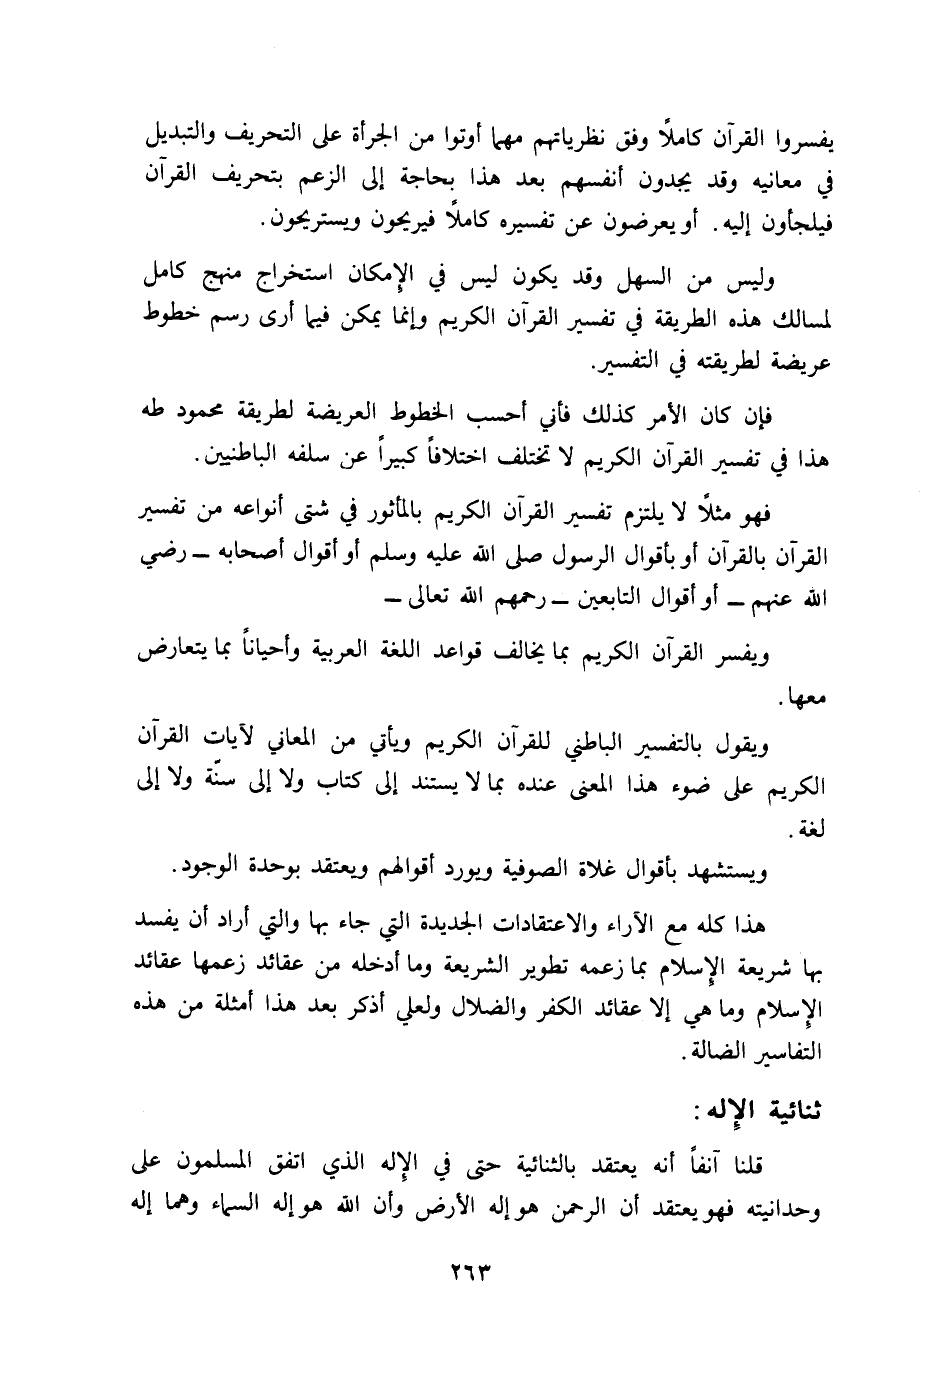 يفسروا القرآن كاملًا وفق نظرياتهم مهما أوتوا من الجرأة على التحريف والتبديل
في معانيه وقد يجدون أنفسهم بعد هذا بحاجة إلى الزعم بتحريف القرآن
فيلجأون إليه. أو يعرضون عن تفسيره كاملًا فيريحون ويستريحون.
وليس من السهل وقد يكون ليس في الإمكان استخراج منهج كامل
لمسالك هذه الطريقة في تفسير القرآن الكريم وإنما يمكن فيما أرى رسم خطوط
عريضة لطريقته في التفسير.
فإن كان الأمر كذلك فأني أحسب الخطوط العريضة لطريقة محمود طه
هذا في تفسير القرآن الكريم لا تختلف اختلافاً كبيراً عن سلفه الباطنيين.
فهو مثلًا لا يلتزم تفسير القرآن الكريم بالمأثور في شتى أنواعه من تفسير
القرآن بالقرآن أو بأقوال الرسول صلى الله عليه وسلم أو أقوال أصحابه ــ رضي
الله عنهم ــ أو أقوال التابعين ــ رحمهم الله تعالى ــ
ويفسر القرآن الكريم بما يخالف قواعد اللغة العربية وأحياناً بما يتعارض
معها.
ويقول بالتفسير الباطني للقرآن الكريم ويأتي من المعاني لآيات القرآن
الكريم على ضوء هذا المعنى عنده بما لا يستند إلى كتاب ولا إلى سنّة ولا إلى
لغة.
ويستشهد بأقوال غلاة الصوفية ويورد أقوالهم ويعتقد بوحدة الوجود.
هذا كله مع الآراء والاعتقادات الجديدة التي جاء بها والتي أراد أن يفسد
بها شريعة الإسلام بما زعمه تطوير الشريعة وما أدخله من عقائد زعمها عقائد
الإسلام وما هي إلا عقائد الكفر والضلال ولعلي أذكر بعد هذا أمثلة من هذه
التفاسير الضالة.
ثنائية الإله:
قلنا آنفاً أنه يعتقد بالثنائية حتى في الإله الذي اتفق المسلمون على
وحدانيته فهو يعتقد أن الرحمن هو إله الأرض وأن الله هو إله السماء وهما إله
٢٦٣